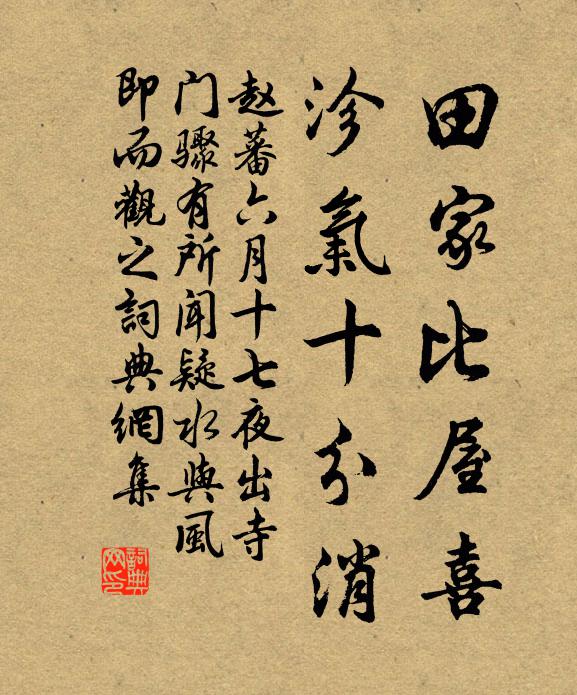 田家比屋喜
沴氣十分消
赵蕃六月十七夜出寺
门骤有所闻疑水與風
即而觀之詞典網集
詞典网印